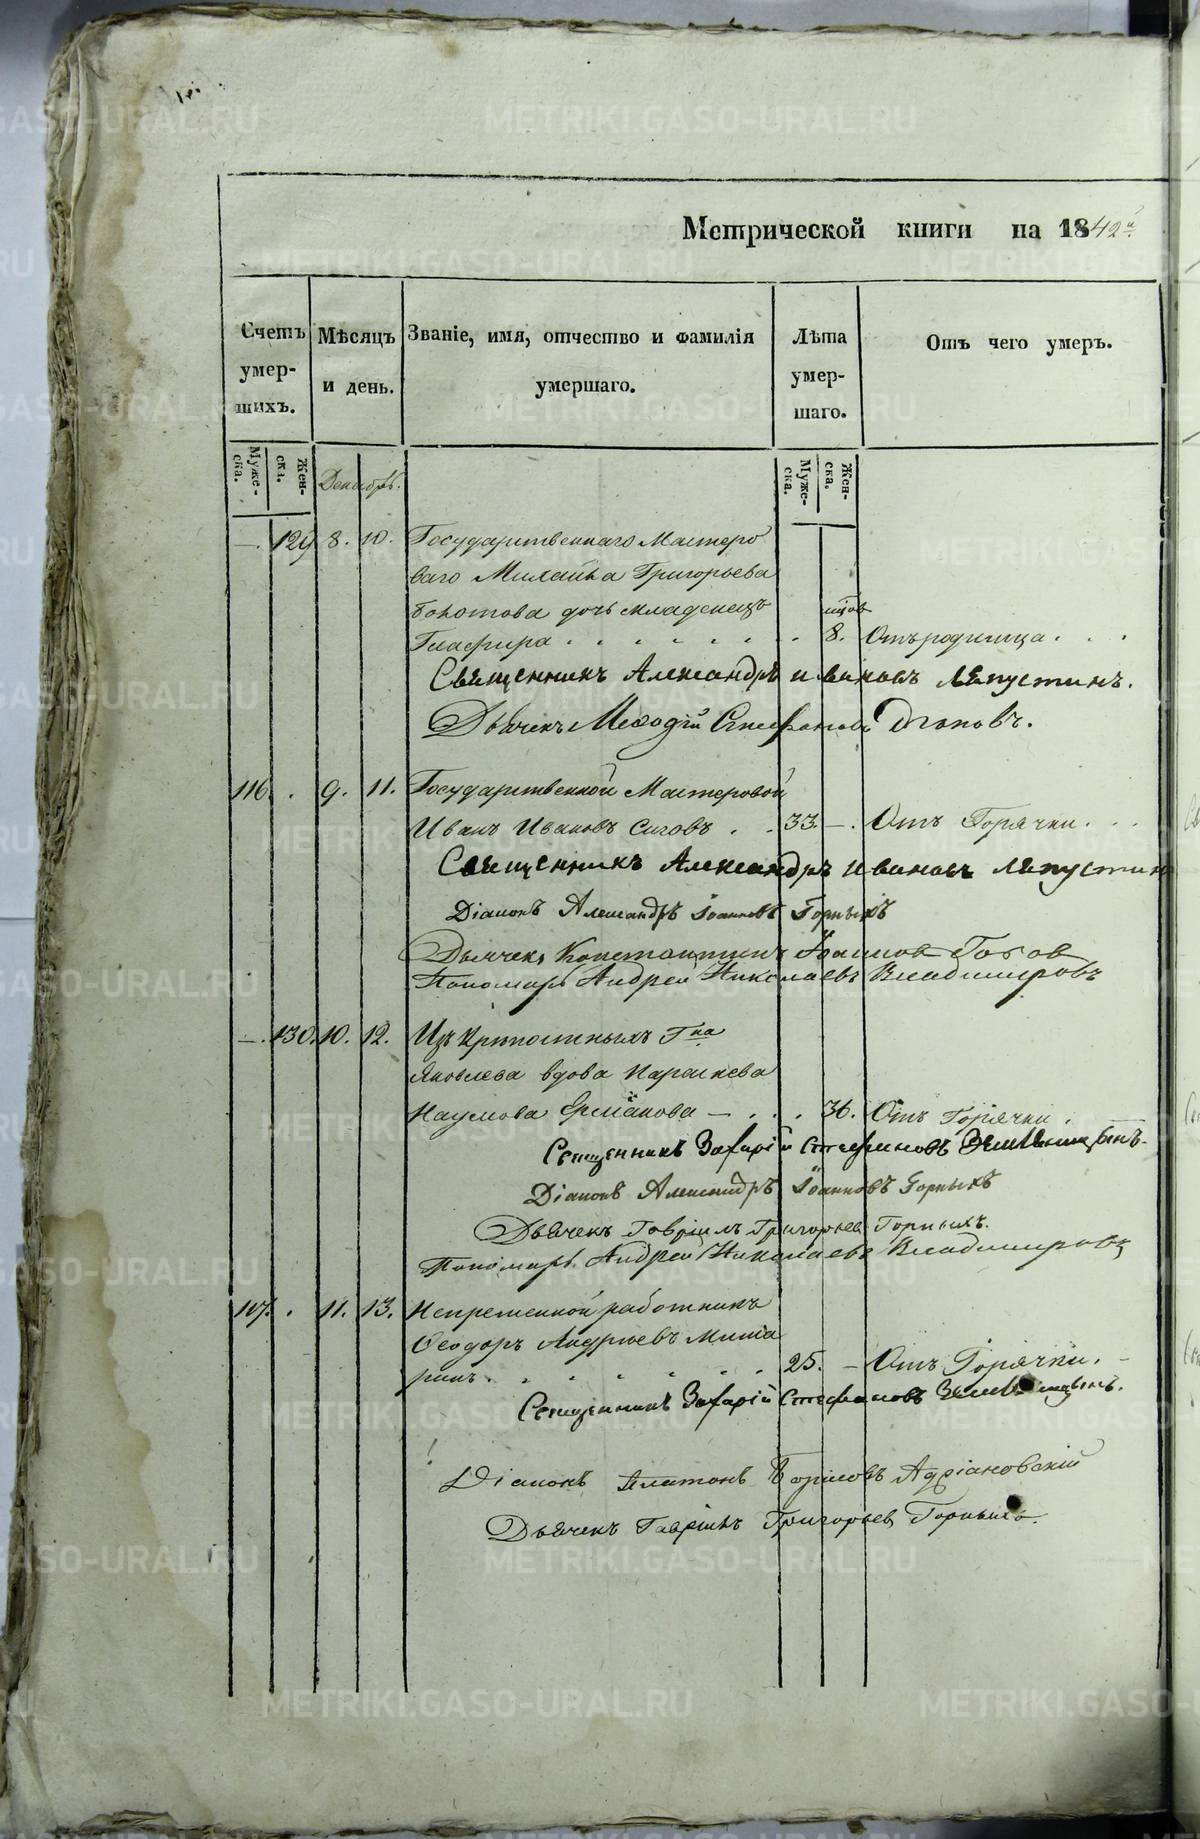 Метрической книги на 1842й
Счетъ умер-шихъ.
Мѣсяцъ и день.
Званіе, имя, отчество и фамилія умершаго.
Лѣта умер-шаго.
Отъ чего умеръ.
Муже-ска. Жен-ска.
Декабрь.
Муже-ска. Жен-ска.
—. 129 8. 10. Государственнаго Мастеро
ваго Михайла Григорьева
дочь младенецъ мцов
Глафира 8. Отъ родимца.
Священникъ Александръ Ивановъ Ляпустинъ.
Дьячекъ Мефодій Стефановъ
116. . 9. 11. Государственной Мастеровой
Иванъ Ивановъ Сиговъ . . 33 —. Отъ Горячки.
Священникъ Александръ Ивановъ Ляпустин
Діаконъ Александръ Іоанновъ Горныхъ
Дьячекъ Константинъ Іоаннов
Пономарь Андрей Николаевъ Владимировъ
—. 130. 10. 12. Изъ Крѣпостныхъ Гна
Яковлева вдова Параскева
Наумова Ермакова — . . . 36. Отъ Горячки.
Священникъ Захарій Стефановъ
Діаконъ Александръ Іоанновъ Горныхъ
Дьячекъ Гавріилъ Григорьев Горныхъ.
Пономарь Андрей Николаевъ Владимировъ
117. . 11. 13. Непременной работникъ
Ѳеодоръ Андреевъ Миша
ринъ. 25. — Отъ Горячки.
Священникъ Захарій Стефановъ
Діаконъ Платонъ Борисовъ Адріановскій
Дьячекъ Гавріилъ Григорьев Горныхъ.
METRIKI.GASO-URAL.RU